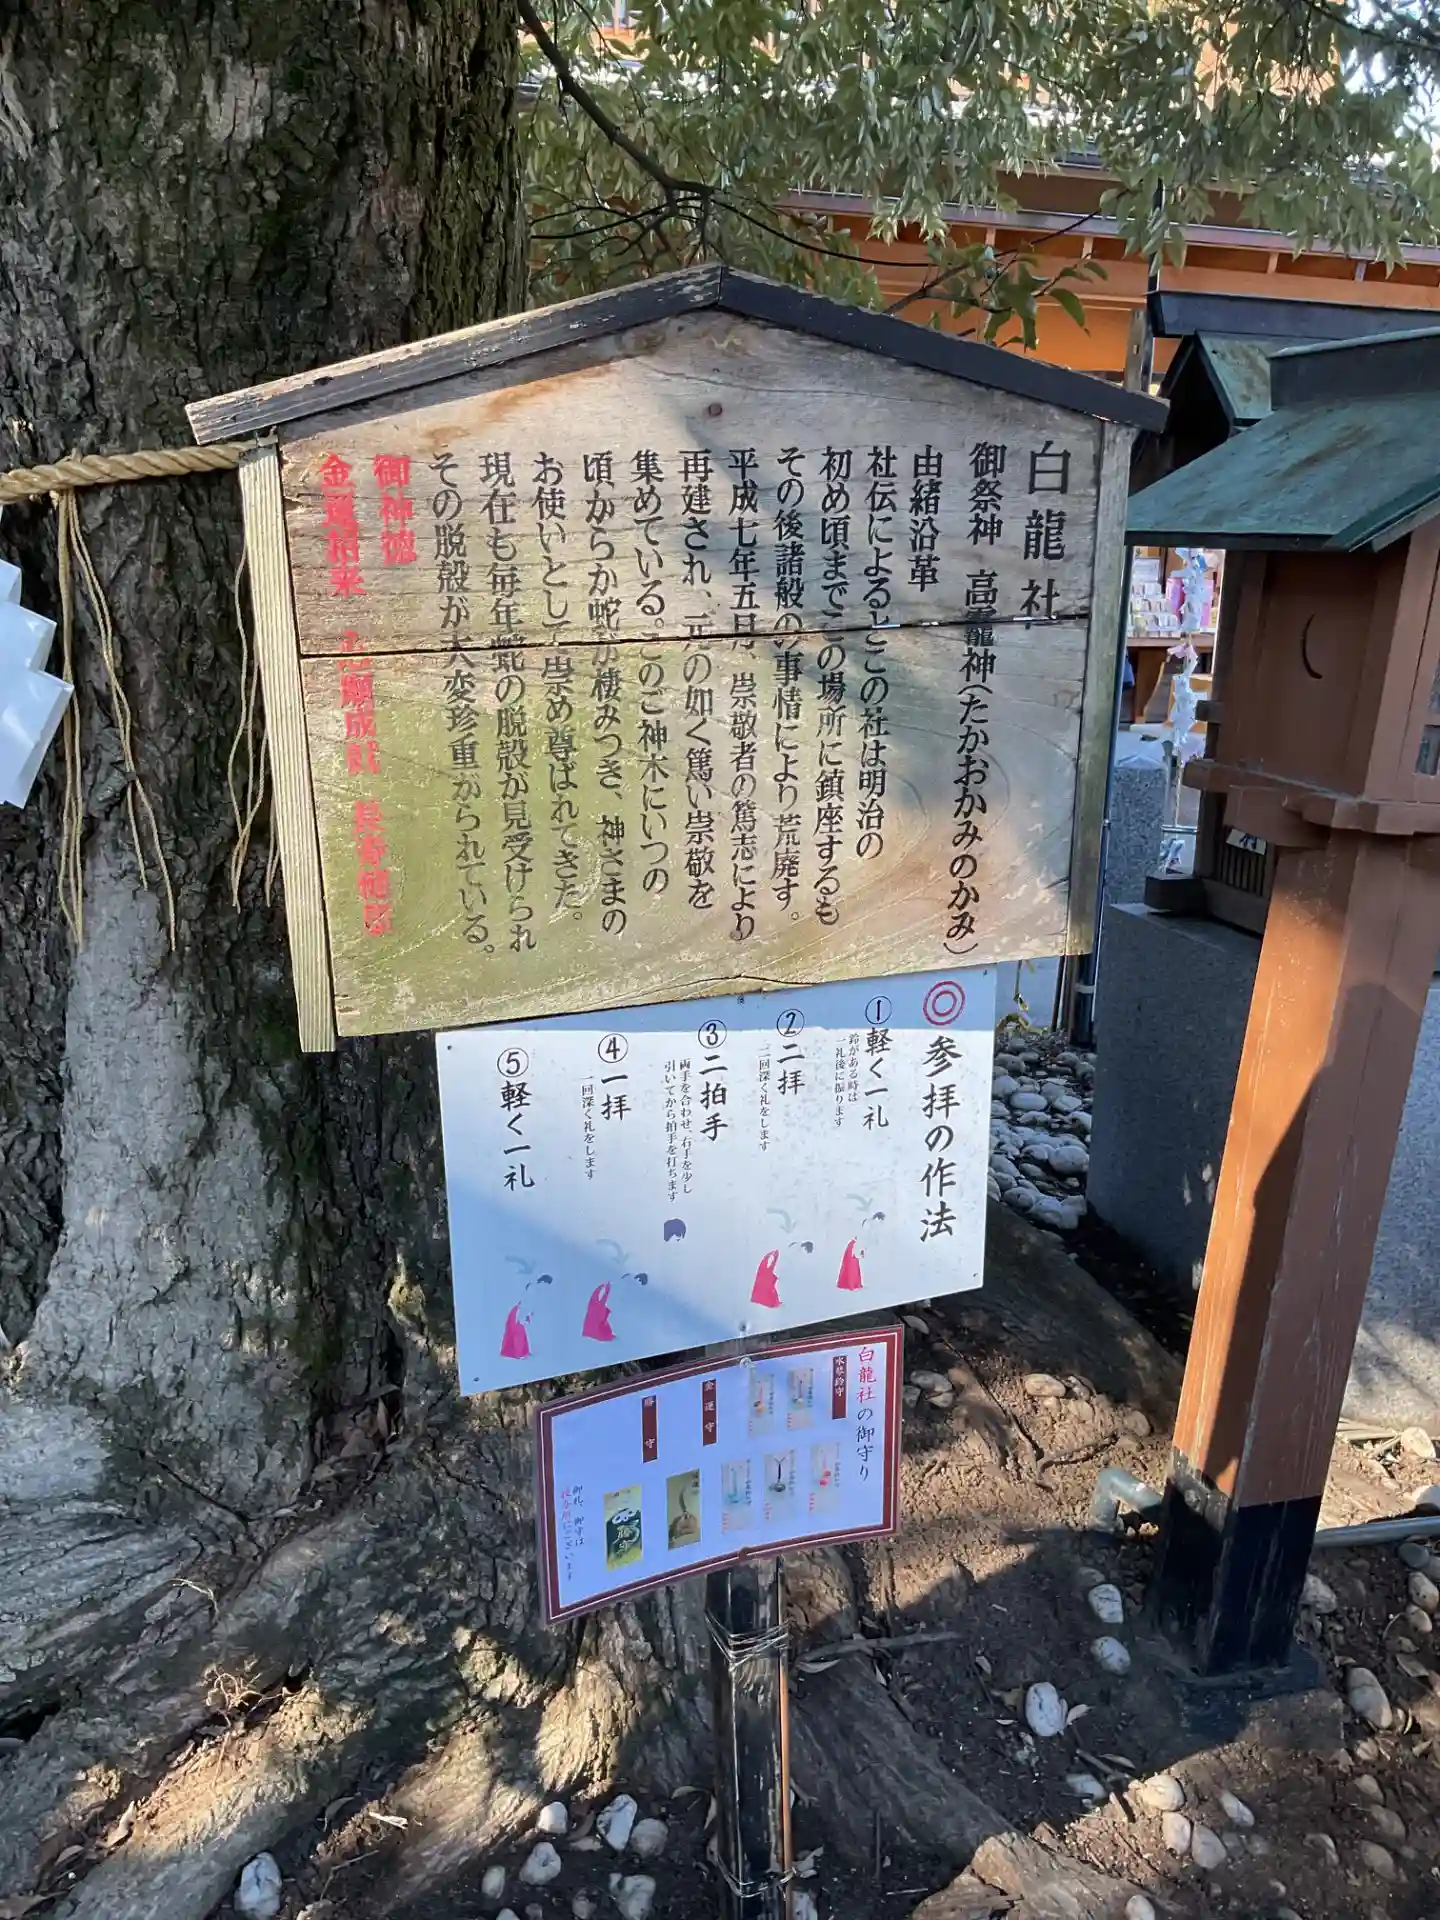 白龍社
御祭神 高龗神(たかおかみのかみ)
由緒沿革
社伝によるとこの社は明治の
初め頃までこの場所に鎮座するも
その後諸般の事情により荒廃す。
平成七年五月、崇敬者の篤志により
再建され、元の如く篤い崇敬を
集めている。このご神木にいつの
頃からか蛇が棲みつき、神さまの
お使いとして崇め尊ばれてきた。
現在も毎年蛇の脱殻が見受けられ
その脱殻が大変珍重がられている。
御神徳
金運招来 心願成就 長寿健康
◎参拝の作法
①軽く一礼
鈴がある時は
一礼後に振ります
②二拝
二回深く礼をします
③二拍手
両手を合わせ、右手を少し
引いてから拍手を打ちます
④一拝
一回深く礼をします
⑤軽く一礼
白龍社の御守り
水琴鈴守
金運守
勝守
御札、御守は
授与所にございます